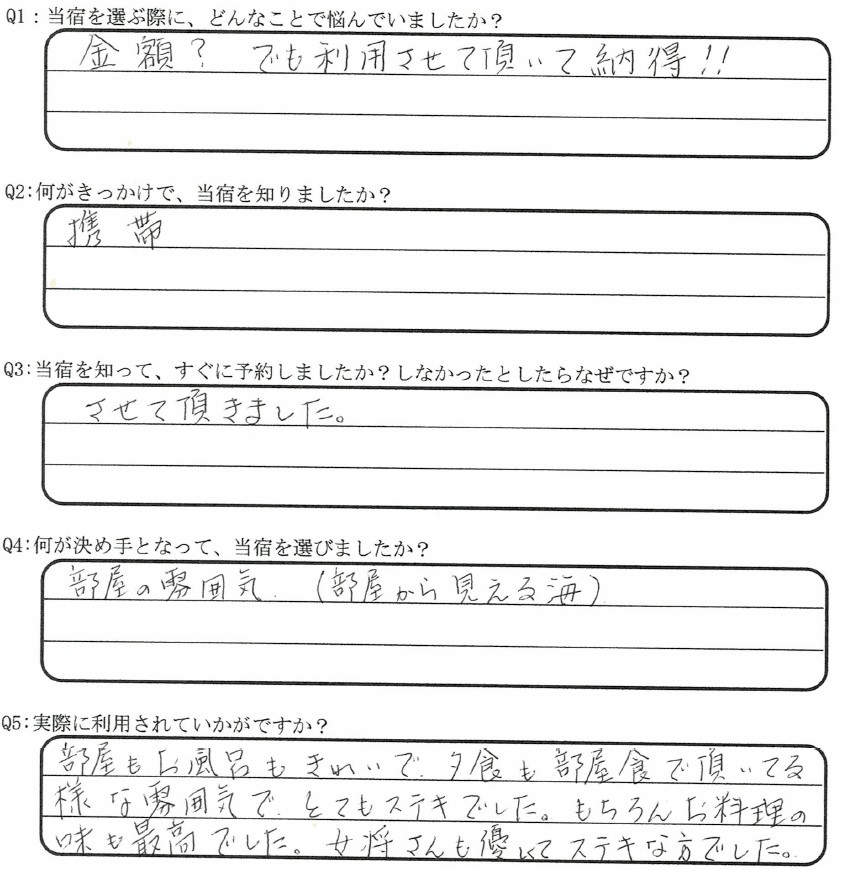 Q1：当宿を選ぶ際に、どんなことで悩んでいましたか？
金額？ でも利用させて頂いて納得!!
Q2:何がきっかけで、当宿を知りましたか？
携帯
Q3:当宿を知って、すぐに予約しましたか？しなかったとしたらなぜですか？
させて頂きました。
Q4:何が決め手となって、当宿を選びましたか？
部屋の雰囲気.（部屋から見える海）
Q5:実際に利用されていかがですか？
部屋もお風呂もきれいで.夕食も部屋食で頂いてる
様な雰囲気で.とてもステキでした。もちろんお料理の
味も最高でした。女将さんも優しくてステキな方でした。